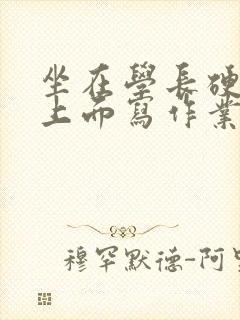 坐在學長硬
上面寫作業
穆罕默德-阿